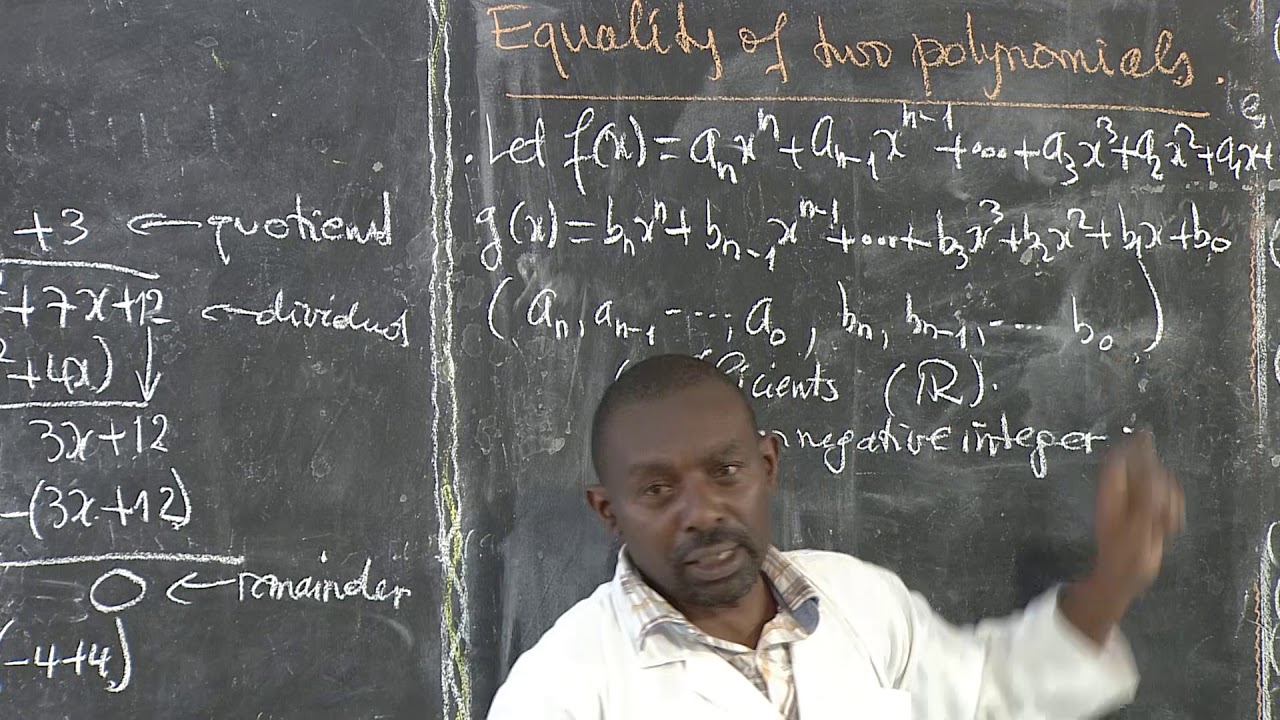 +3 ← quotient
+7x+12 ← dividend
+4x)
3x+12
-(3x+12)
0 ← remainder
(-4+4)
Equality of two polynomials.
. Let f(x) = aₙxⁿ + aₙ₋₁xⁿ⁻¹ + ... + a₃x³ + a₂x² + a₁x +
g(x) = bₙxⁿ + bₙ₋₁xⁿ⁻¹ + ... + b₃x³ + b₂x² + b₁x + b₀
(aₙ, aₙ₋₁ ----, a₀, bₙ, bₙ₋₁, --- b₀)
icients (ℝ).
negative integer